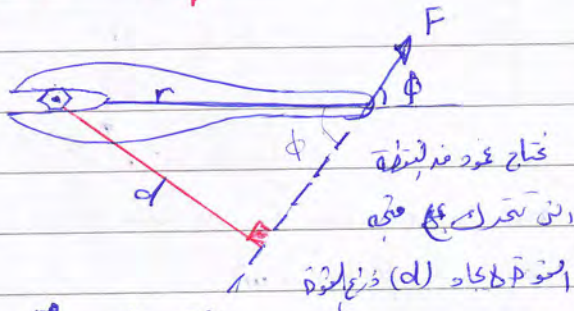 F
r
ϕ
ϕ
d
نحتاج عمود من النقطة
التي تتحرك مع متجه
القوة لايجاد (d) ذراع القوة